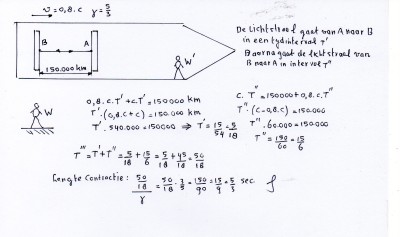 v = 0,8.c γ = 5/3
De Lichtstraal gaat van A naar B
in een tydinterval T'
Daarna gaat de lichtstraal van
B naar A in interval T"
B A
150.000 km
W'
W
0,8.c.T' + c.T' = 150000 km
T'.(0,8.c + c) = 150.000 km
T'. 540.000 = 150000 ⇒ T' = 15/54 = 5/18
c. T" = 150000 + 0,8.c.T"
T".(c - 0,8.c) = 150.000
T". 60.000 = 150.000
T" = 150/60 = 15/6
T''' = T' + T" = 5/18 + 15/6 = 5/18 + 45/18 = 50/18
Lengte Contractie: 50/18 / γ = 50/18 . 3/5 = 150/90 = 15/9 = 5/3 sec